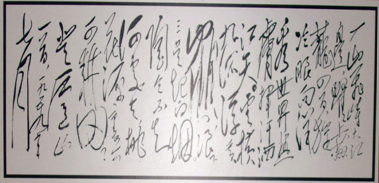 一山飛峙大江
邊躍上葱
蘢四百旋
冷眼向洋
看世界熱
風吹雨洒
江天雲横
九派浮黄
鶴浪下
三吴起白烟
陶令不知
何處去桃
花源里
可耕田
登庐山
一九五九年
七月